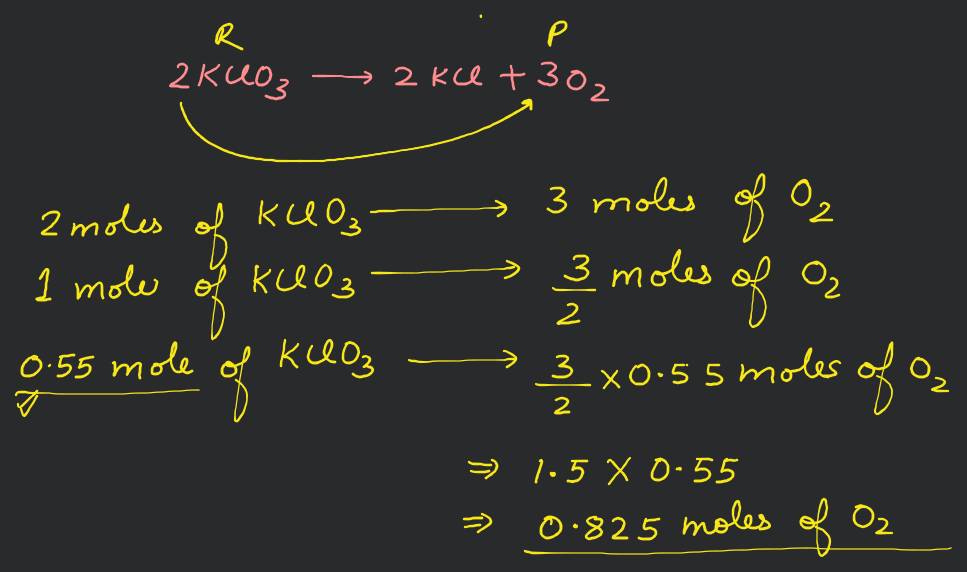 R P
2KClO₃ ⟶ 2 KCl + 3O₂
2 moles of KClO₃ ⟶ 3 moles of O₂
1 mole of KClO₃ ⟶ 3/2 moles of O₂
0.55 mole of KClO₃ ⟶ 3/2 × 0.55 moles of O₂
⇒ 1.5 × 0.55
⇒ 0.825 moles of O₂